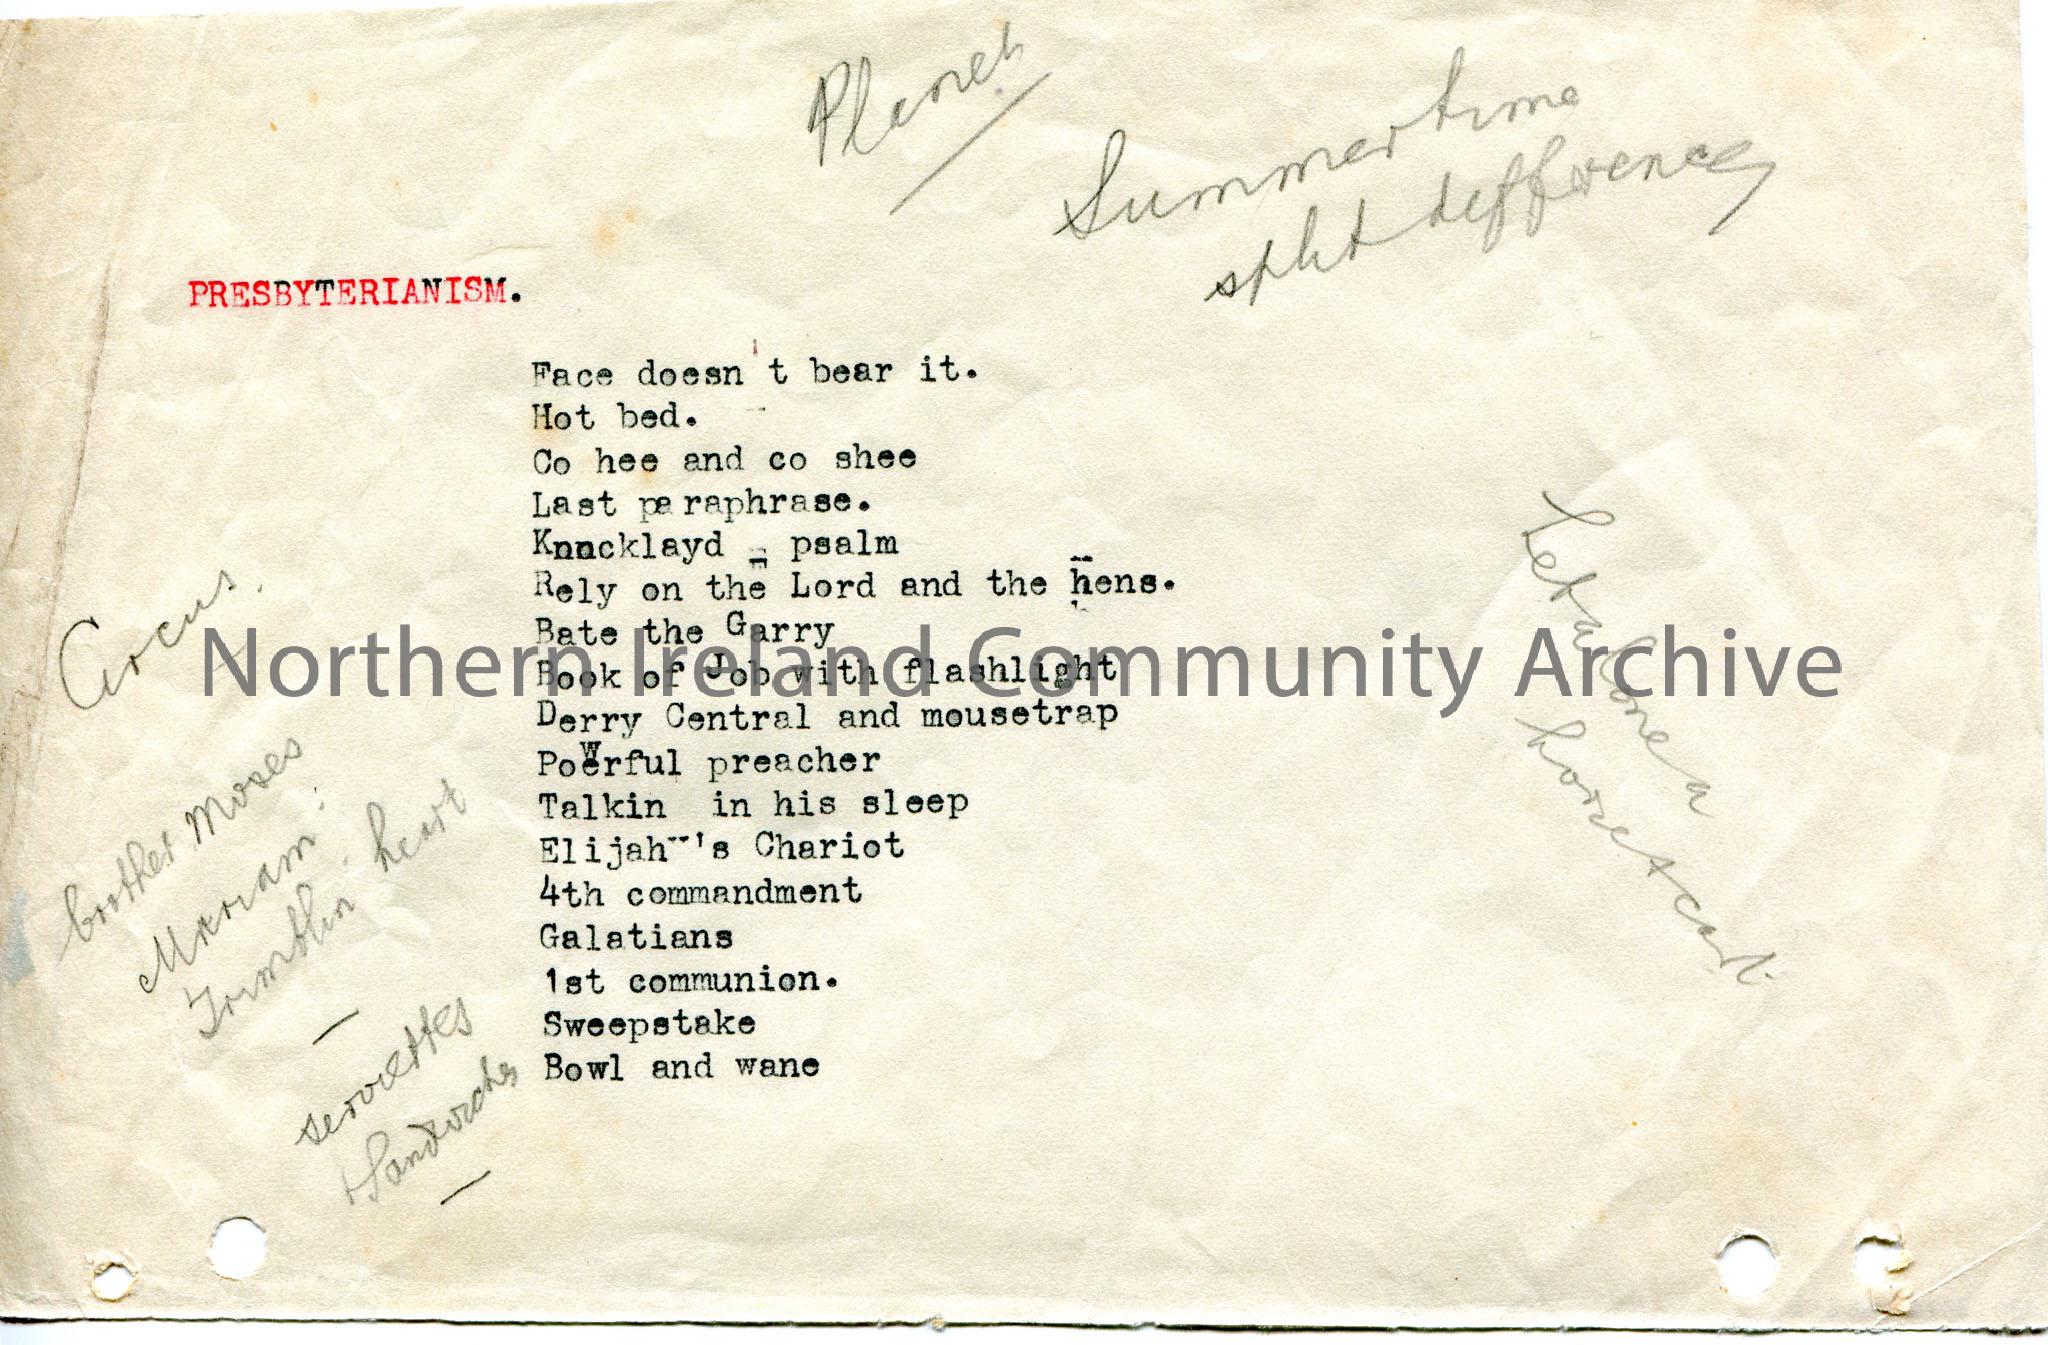 Planet
Summertime
split difference
PRESBYTERIANISM.
Face doesn't bear it.
Hot bed.
Co hee and co shee
Last paraphrase.
Knocklayd - psalm
Rely on the Lord and the hens.
Bate the Garry
Book of Job with flashlight
Derry Central and mousetrap
Powerful preacher
Talkin in his sleep
Elijah's Chariot
4th commandment
Galatians
1st communion.
Sweepstake
Bowl and wane
Circus.
brother Moses
Mariam.
Trimblin. heart
serviettes
+ Sandwiches
Let alone a
horse & cart.
Northern Ireland Community Archive